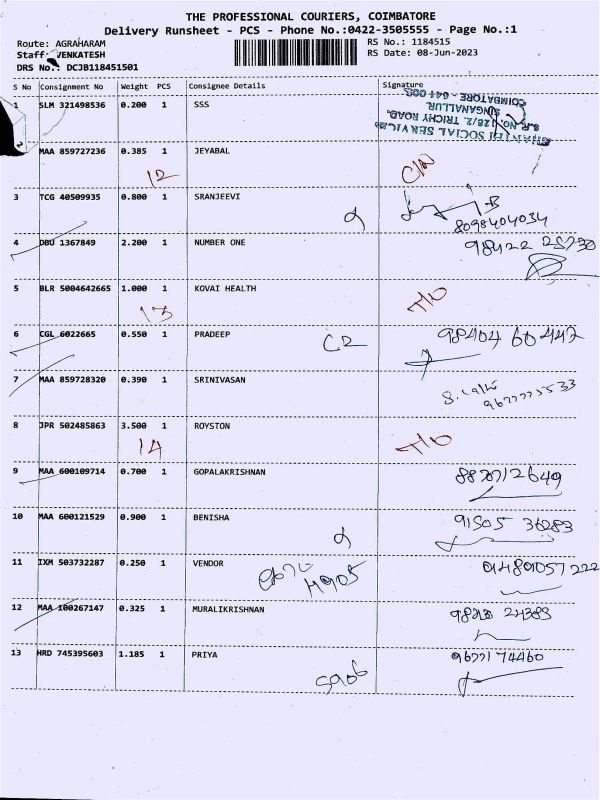 THE PROFESSIONAL COURIERS, COIMBATORE
Delivery Runsheet - PCS - Phone No.:0422-3505555 - Page No.:1
Route: AGRAHARAM
RS No.: 1184515
Staff: VENKATESH
RS Date: 08-Jun-2023
DRS No.: DCJB118451501
S No Consignment No Weight PCS Consignee Details Signature
1 SLM 321498536 0.200 1 SSS
SHANTHI SOCIAL SERVICES
S.F. NO. 128/2, TRICHY ROAD,
SINGANALLUR,
COIMBATORE - 641 005.
2 MAA 859727236 0.385 1 JEYABAL
12 C/N
3 TCG 40509935 0.800 1 SRANJEEVI
8098404034
4 DBU 1367849 2.200 1 NUMBER ONE
98422 25750
5 BLR 5004642665 1.000 1 KOVAI HEALTH
13 T/O
6 CGL 6022665 0.550 1 PRADEEP
98404 60447
7 MAA 859728320 0.390 1 SRINIVASAN
8 JPR 502485863 3.500 1 ROYSTON
14 T/O
9 MAA 600109714 0.700 1 GOPALAKRISHNAN
8870712649
10 MAA 600121529 0.900 1 BENISHA
91505 36283
11 IXM 503732287 0.250 1 VENDOR
12 MAA 100267147 0.325 1 MURALIKRISHNAN
13 HRD 745395603 1.185 1 PRIYA
5906